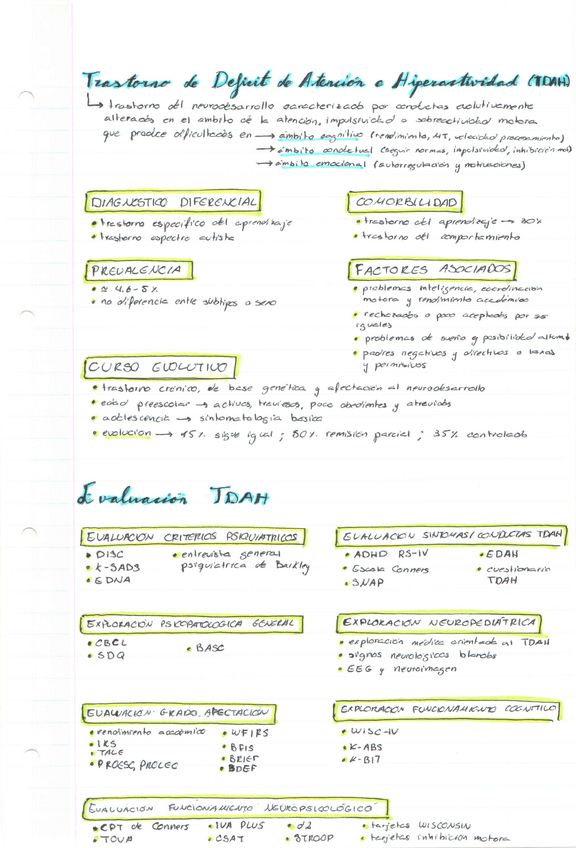 Trastorno de Deficit de Atención e Hiperactividad (TDAH)
↳ trastorno del neurodesarrollo caracterizado por conductas evolutivamente
alteradas en el ámbito de la atención, impulsividad o sobreactividad motora
que produce dificultades en → ámbito cognitivo (rendimiento, MT, velocidad procesamiento)
→ ámbito conductual (seguir normas, impulsividad, inhibición mot)
→ ámbito emocional (autorregulación y motivaciones)
DIAGNÓSTICO DIFERENCIAL
• trastorno específico del aprendizaje
• trastorno espectro autista
COMORBILIDAD
• trastorno del aprendizaje → 30%
• trastorno del comportamiento
PREVALENCIA
• ≈ 4,6-8%
• no diferencia entre subtipos o sexo
FACTORES ASOCIADOS
• problemas inteligencia, coordinación
motora y rendimiento académico
• rechazados o poco aceptados por sus
iguales
• problemas de sueño y posibilidad
• padres negativos y directivos o laxos
y permisivos
CURSO EVOLUTIVO
• trastorno crónico, de base genética y afectación al neurodesarrollo
• edad preescolar → activos, traviesos, poco obedientes y atrevidos
• adolescencia → sintomatología básica
• evolución → 15% sigue igual ; 50% remisión parcial ; 35% controlado
Evaluación TDAH
EVALUACIÓN CRITERIOS PSIQUIÁTRICOS
• DISC
• K-SADS
• EDNA
• entrevista general
psiquiátrica de Barkley
EVALUACIÓN SÍNTOMAS/CONDUCTAS TDAH
• ADHD RS-IV
• Escala Conners
• SNAP
• EDAH
• cuestionario
TDAH
EXPLORACIÓN PSICOPATOLÓGICA GENERAL
• CBCL
• SDQ
• BASC
EXPLORACIÓN NEUROPEDIÁTRICA
• exploración médica orientada al TDAH
• signos neurológicos blandos
• EEG y neuroimagen
EVALUACIÓN GRADO AFECTACIÓN
• rendimiento académico
• IRS
• TALE
• PROESC, PROLEC
• WFIRS
• BFIS
• BRIEF
• BDEF
EXPLORACIÓN FUNCIONAMIENTO COGNITIVO
• WISC-IV
• K-ABS
• K-BIT
EVALUACIÓN FUNCIONAMIENTO NEUROPSICOLÓGICO
• CPT de Conners
• TOVA
• IVA PLUS
• CSAT
• d2
• STROOP
• tarjetas WISCONSIN
• tarjetas inhibición motora